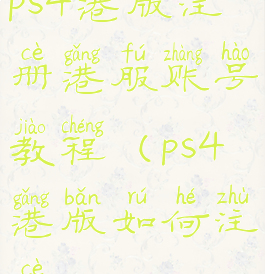 ps4港版注
cè gǎng fú zhàng hào
册港服账号
jiào chéng
教程（ps4
gǎng bǎn rú hé zhù
港版如何注
cè